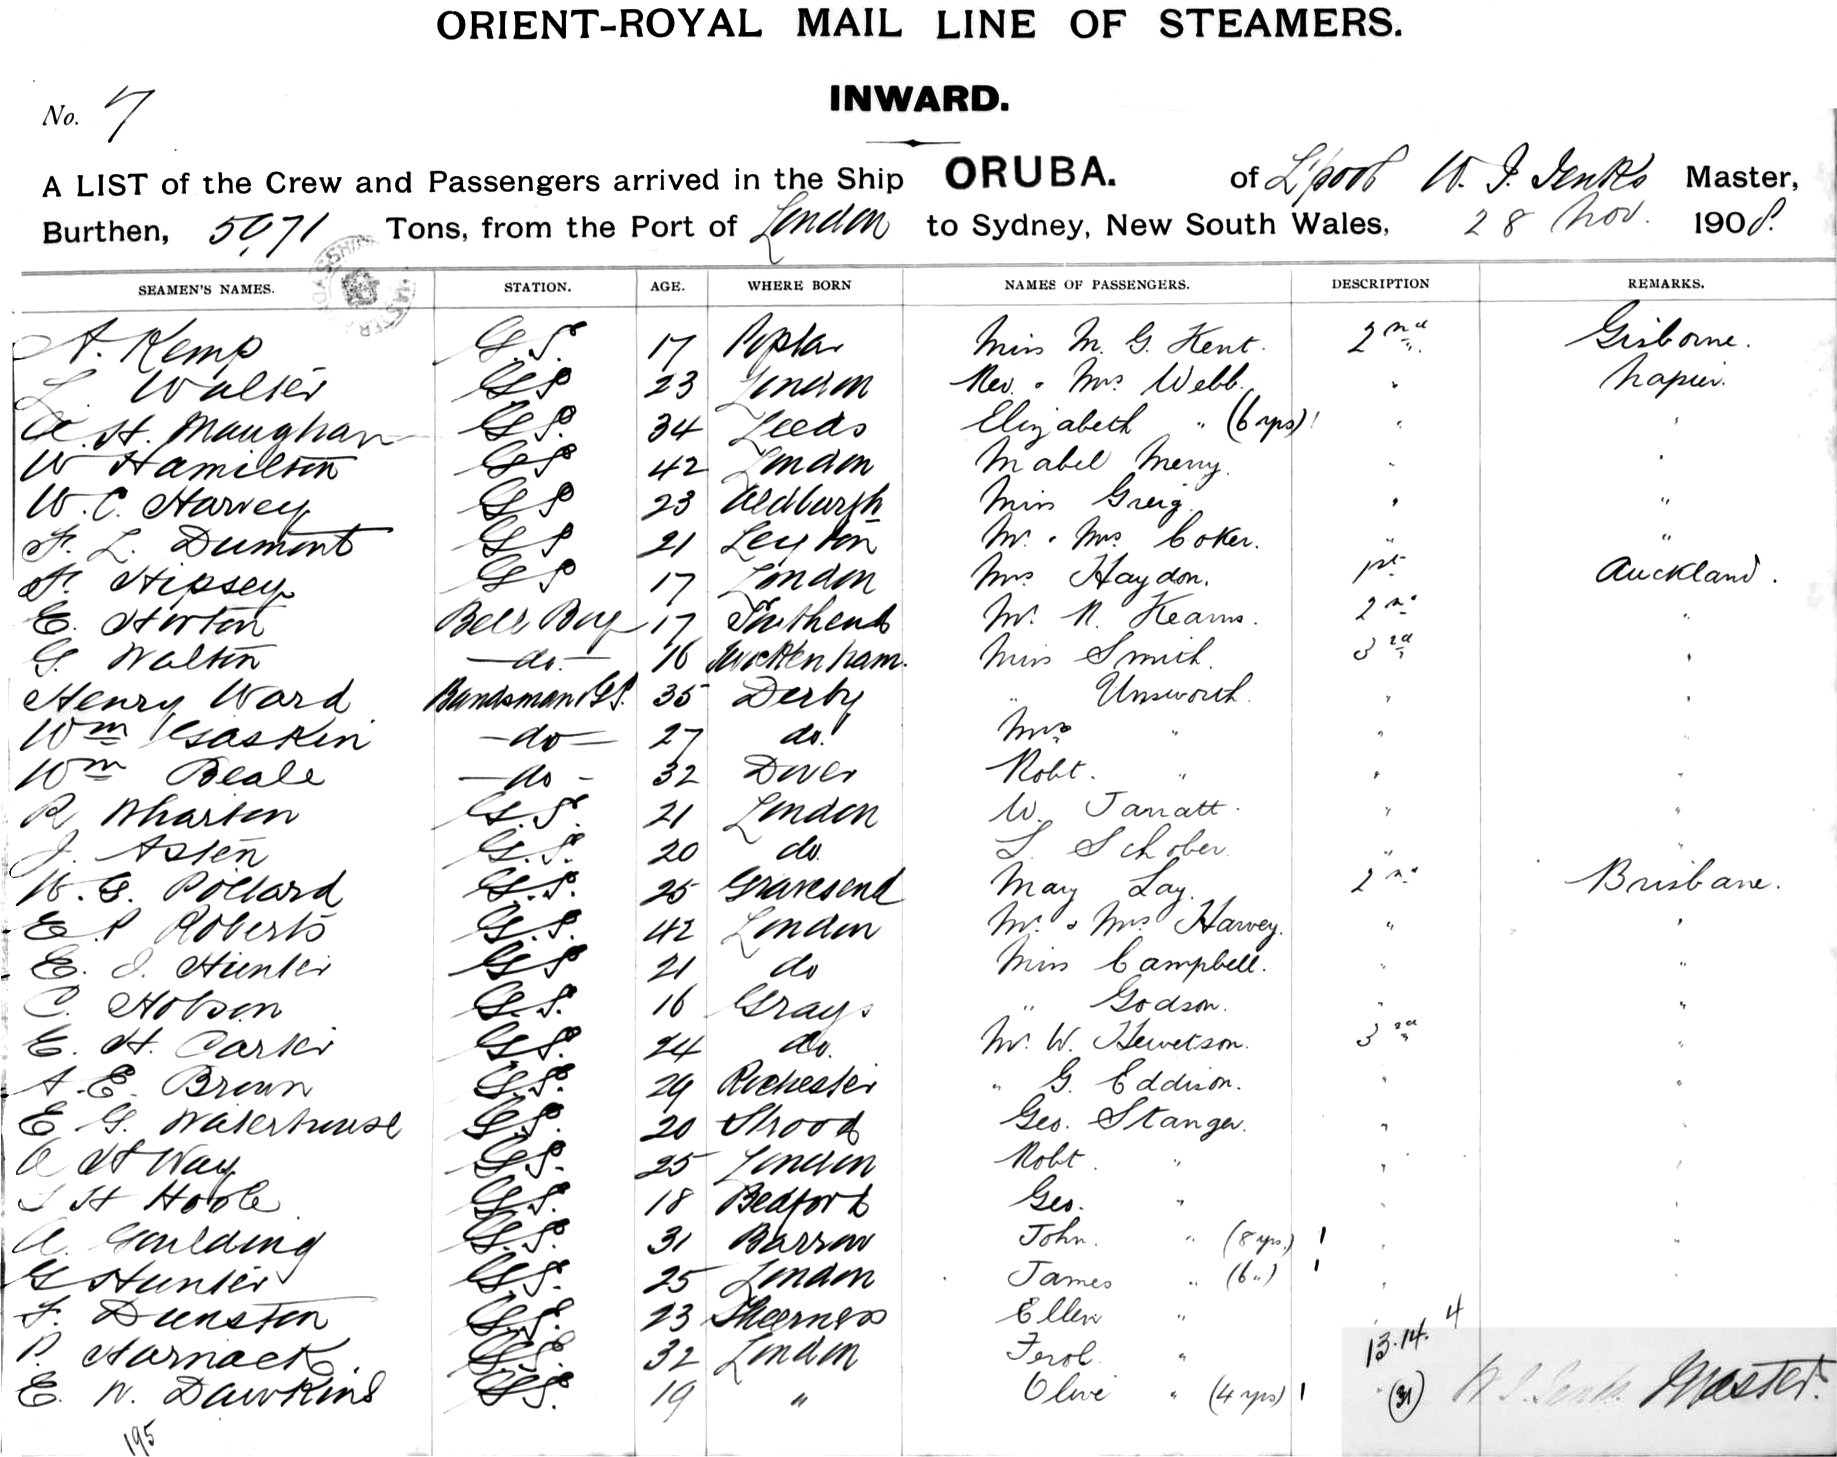 ORIENT-ROYAL MAIL LINE OF STEAMERS.
No. 7
INWARD.
A LIST of the Crew and Passengers arrived in the Ship ORUBA. of L'pool W. J. Jenks Master,
Burthen, 5971 Tons, from the Port of London to Sydney, New South Wales, 28 Nov. 1908.
SEAMEN'S NAMES. STATION. AGE. WHERE BORN NAMES OF PASSENGERS. DESCRIPTION REMARKS.
A. Kemp G.S. 17 Poplar Miss M. G. Kent. 2nd Gisborne.
L. Walter GS 23 London Rev. & Mrs Webb. " Napier.
A. H. Maughan GS. 34 Leeds Elizabeth " (6 yrs) 1 " "
W Hamilton GS 42 London Mabel Merry. " "
W. C. Harvey GS 23 Aldburgh Miss Greig. " "
F. L. Dumont GS 21 Leyton Mr. & Mrs Coker. " "
F. Hipsey GS 17 London Mrs Haydon. 1st Auckland.
E. Horton Bell Boy 17 Southend Mr. R. Kearns. 2nd "
G. Walton -do.- 16 Twickenham. Miss Smith. 3rd "
Henry Ward Bandsman GS. 35 Derby " Unsworth. " "
Wm Gaskin -do- 27 do. Mrs " " "
Wm Beale -do- 32 Dover Robt. " " "
R Wharton G.S. 21 London W. Jarratt. " "
J. Asten G.S. 20 do. L. Schober. " "
W. G. Pollard G.S. 25 Gravesend May Lay. 2nd Brisbane.
E. P Roberts G.S. 42 London Mr. & Mrs Harvey. " "
E. J. Hunter GS 21 do Miss Campbell. " "
C. Hobson G.S. 16 Grays " Godson. " "
E. H. Carter G.S. 24 do. Mr. W. Hewetson. 3rd "
A. E. Brown G.S. 29 Rochester " G. Eddison. " "
E G. Waterhouse G.S. 20 Strood Geo. Stanger. "
A H Way G.S. 25 London Robt. " " "
H Hoole G.S. 18 Bedford Geo. " " "
A. Goulding G.S. 31 Barrow John. " (8 yrs.) 1 " "
G Hunter G.S. 25 London James " (6 ") 1 " "
F. Dunston G.S. 23 Sheerness Ellen " "
P. Harnack. G.S. 32 London Ferol. " 13.14. 4
E. W. Dawkins G.S. 19 " Olive " (4 yrs) 1 " (31) W J Jenks Master.
195